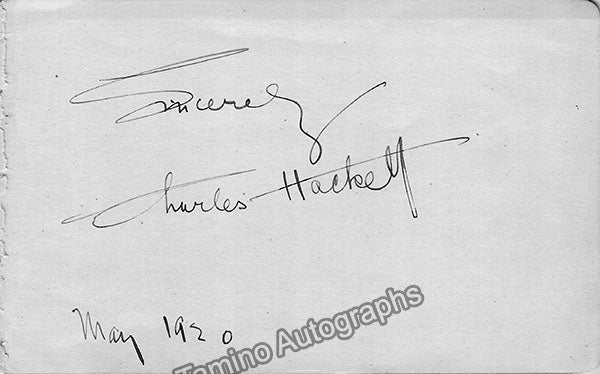 Sincerely
Charles Hackett
May 1920
Tamino Autographs